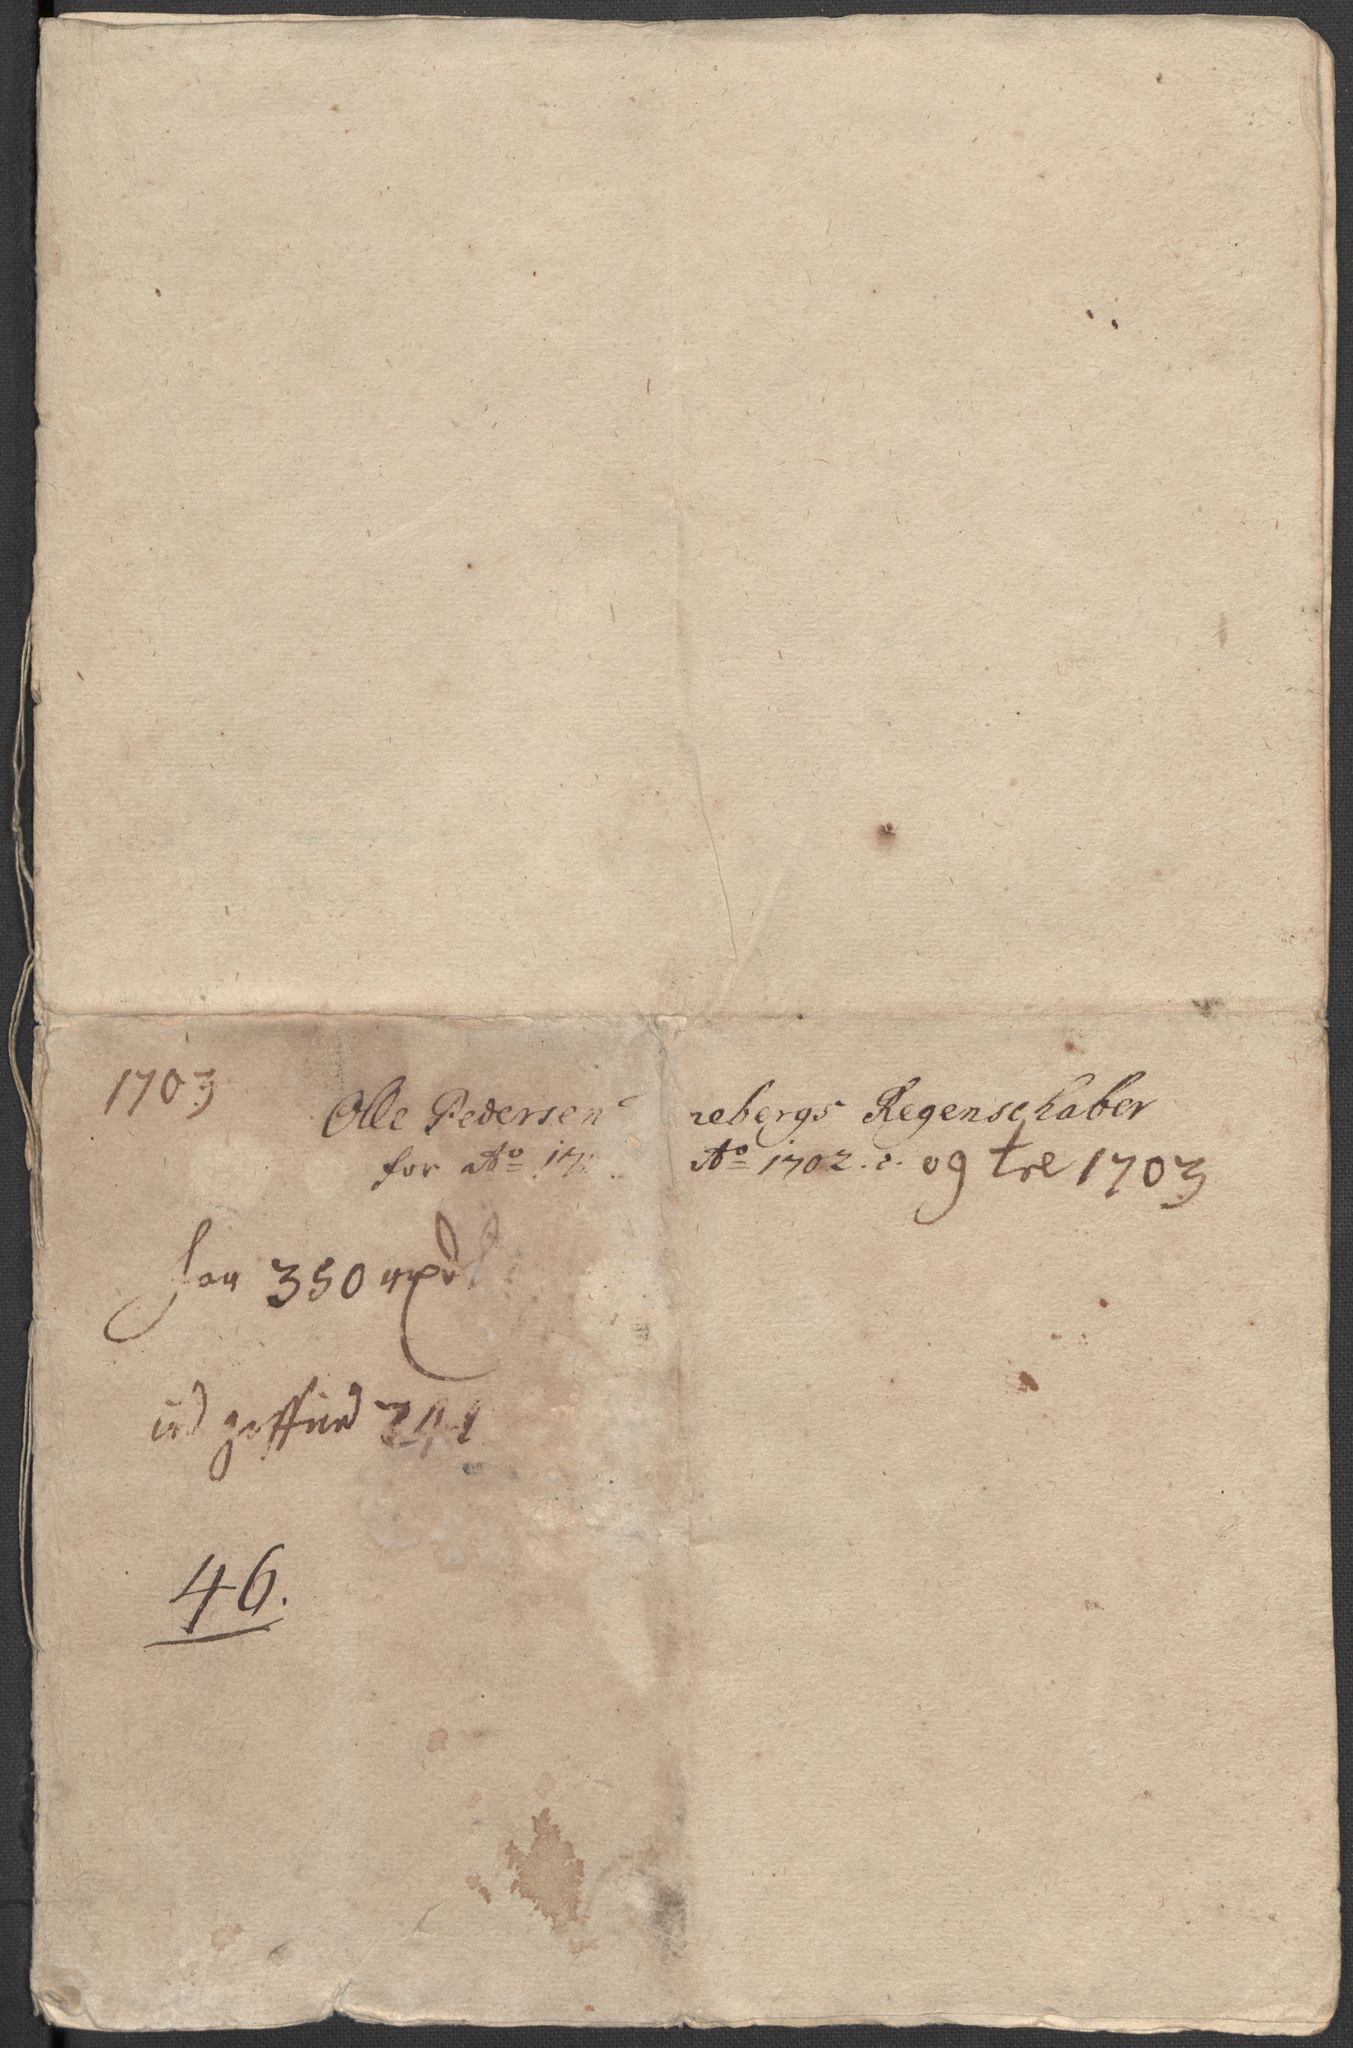 1703
Olle Pedersen nebergs Regenschaber
for Ao 17 Ao 1702. og tre 1703
350
ud 741
46.